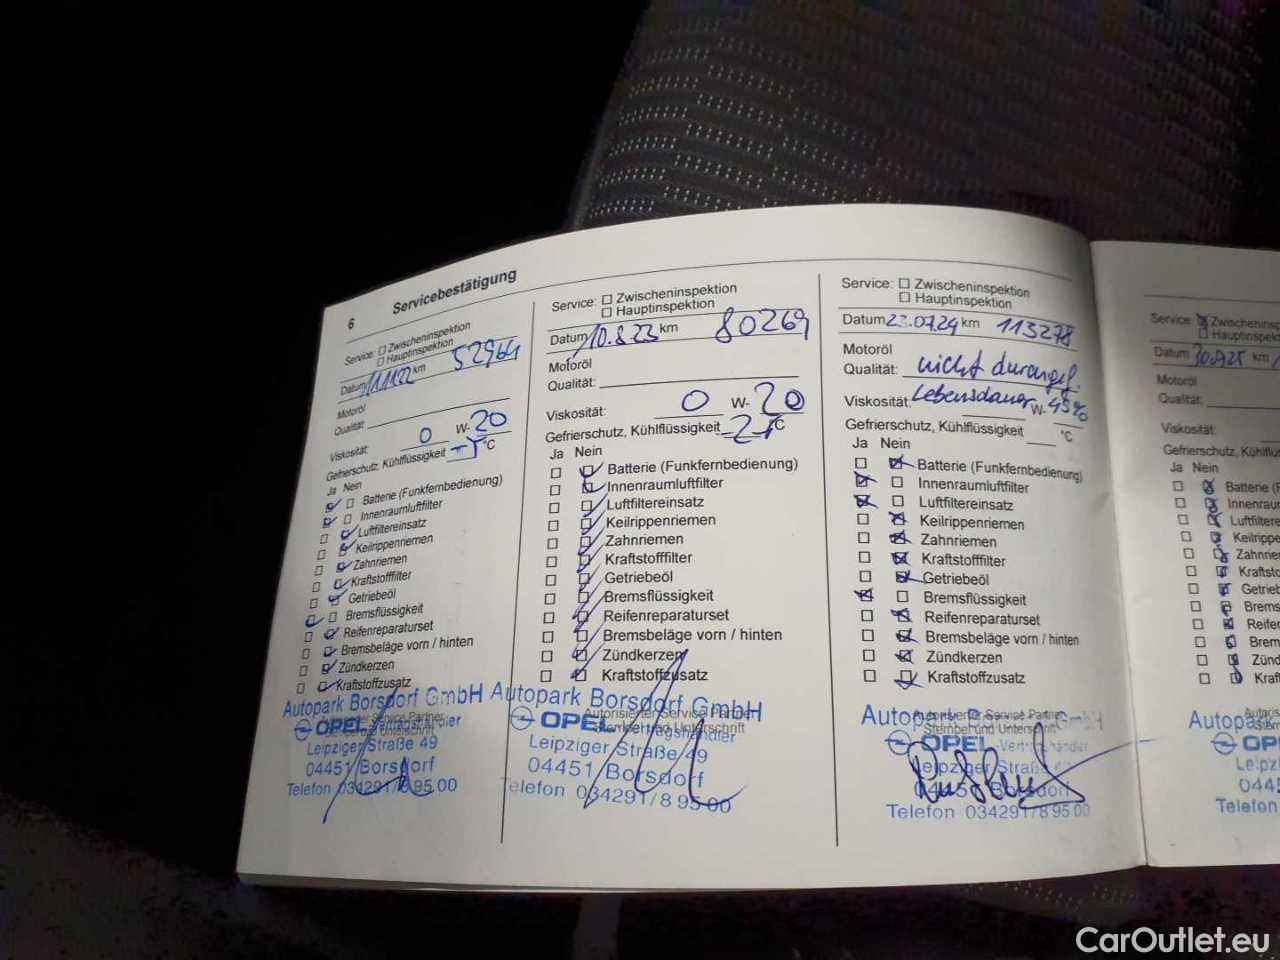 6 Servicebestätigung
Service: ☐ Zwischeninspektion
☐ Hauptinspektion
Datum 11.11.22 km 52964
Motoröl
Qualität:
Viskosität: 0 W- 20
Gefrierschutz, Kühlflüssigkeit °C
Ja Nein
Batterie (Funkfernbedienung)
Innenraumluftfilter
Luftfiltereinsatz
Keilrippenriemen
Zahnriemen
Kraftstofffilter
Getriebeöl
Bremsflüssigkeit
Reifenreparaturset
Bremsbeläge vorn / hinten
Zündkerzen
Kraftstoffzusatz
Autopark Borsdorf GmbH
OPEL-Vertragshändler
Leipziger Straße 49
04451 Borsdorf
Telefon 034291/8 95 00
Service: ☐ Zwischeninspektion
☐ Hauptinspektion
Datum 10.8.23 km 80269
Motoröl
Qualität:
Viskosität: 0 W- 20
Gefrierschutz, Kühlflüssigkeit °C
Ja Nein
Batterie (Funkfernbedienung)
Innenraumluftfilter
Luftfiltereinsatz
Keilrippenriemen
Zahnriemen
Kraftstofffilter
Getriebeöl
Bremsflüssigkeit
Reifenreparaturset
Bremsbeläge vorn / hinten
Zündkerzen
Kraftstoffzusatz
Autopark Borsdorf GmbH
Autorisierter Service Partner
Stempel und Unterschrift
OPEL-Vertragshändler
Leipziger Straße 49
04451 Borsdorf
Telefon 034291/8 95 00
Service: ☐ Zwischeninspektion
☐ Hauptinspektion
Datum 23.07.24 km 113278
Motoröl
Qualität: nicht durchgef.
Viskosität: Lebensdauer W- 45%
Gefrierschutz, Kühlflüssigkeit °C
Ja Nein
Batterie (Funkfernbedienung)
Innenraumluftfilter
Luftfiltereinsatz
Keilrippenriemen
Zahnriemen
Kraftstofffilter
Getriebeöl
Bremsflüssigkeit
Reifenreparaturset
Bremsbeläge vorn / hinten
Zündkerzen
Kraftstoffzusatz
Autopark Borsdorf GmbH
Autorisierter Service Partner
Stempel und Unterschrift
OPEL-Vertragshändler
Leipziger Straße
04451 Borsdorf
Telefon 034291/8 95 00
Service: Zwischeninspektion
Hauptinspektion
Datum km
Motoröl
Qualität:
Viskosität:
Gefrierschutz, Kühlflüssi
Ja Nein
Batterie (F
Innenraum
Luftfiltere
Keilrippe
Zahnrie
Kraftst
Getrieb
Brems
Reifen
Brems
Zünd
Kraf
Autopark
OPE
Leipzi
044
Telefon
CarOutlet.eu